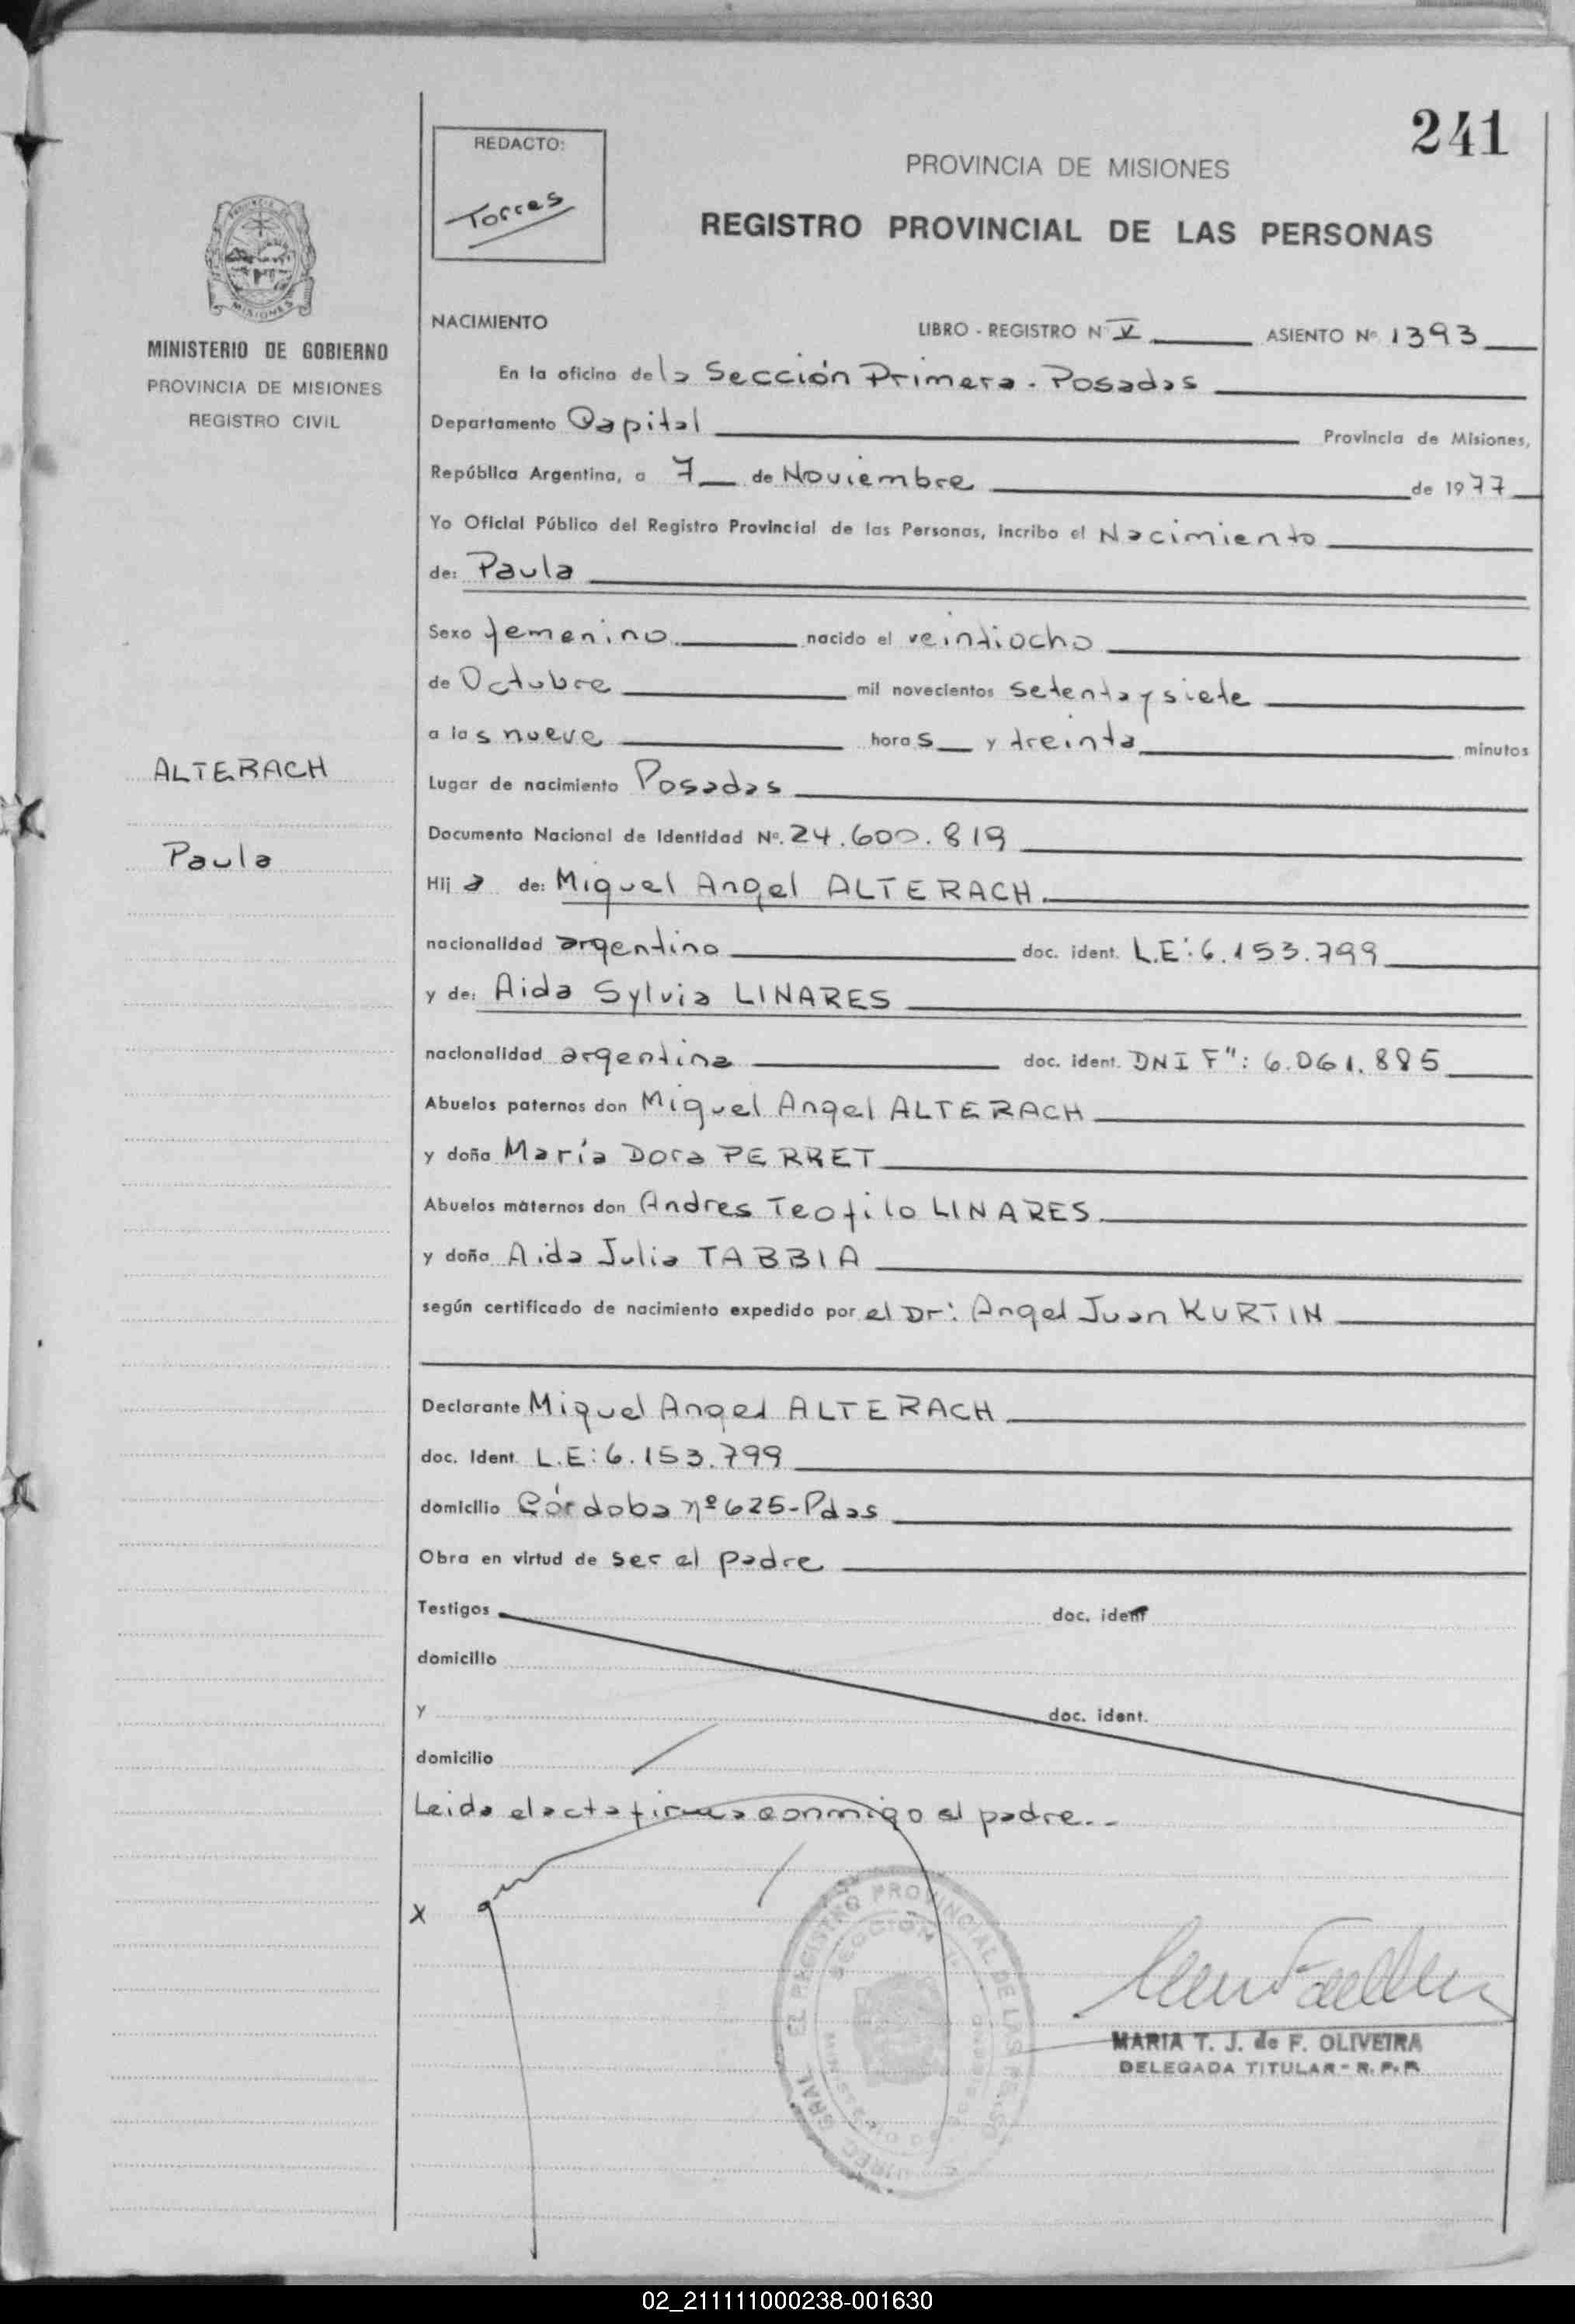 241
REDACTO:
Torres
PROVINCIA DE MISIONES
REGISTRO PROVINCIAL DE LAS PERSONAS
MISIONES
MINISTERIO DE GOBIERNO
PROVINCIA DE MISIONES
REGISTRO CIVIL
NACIMIENTO LIBRO - REGISTRO Nº V ASIENTO Nº 1393
En la oficina de la Sección Primera - Posadas
Departamento Capital Provincia de Misiones,
República Argentina, a 7 de Noviembre de 1977
Yo Oficial Público del Registro Provincial de las Personas, incribo el Nacimiento
de: Paula
Sexo femenino nacido el veintiocho
de Octubre mil novecientos setenta y siete
a las nueve horas y treinta minutos
ALTERACH
Lugar de nacimiento Posadas
Documento Nacional de Identidad Nº. 24.600.819
Paula
Hij a de: Miguel Angel ALTERACH
nacionalidad argentino doc. ident. L.E: 6.153.799
y de: Aida Sylvia LINARES
nacionalidad argentina doc. ident. DNI F": 6.061.885
Abuelos paternos don Miguel Angel ALTERACH
y doña María Dora PERRET
Abuelos maternos don Andres Teofilo LINARES
y doña Aida Julia TABBIA
según certificado de nacimiento expedido por el Dr: Angel Juan KURTIN
Declarante Miguel Angel ALTERACH
doc. Ident. L.E: 6.153.799
domicilio Córdoba nº 625-Pdas
Obra en virtud de ser el padre
Testigos doc. ident
domicilio
y doc. ident.
domicilio
Leida el acta firma conmigo el padre.-
X
EL REGISTRO PROVINCIAL DE LAS
SECCION
MARIA T. J. de F. OLIVEIRA
DELEGADA TITULAR - R. P. P.
02_211111000238-001630